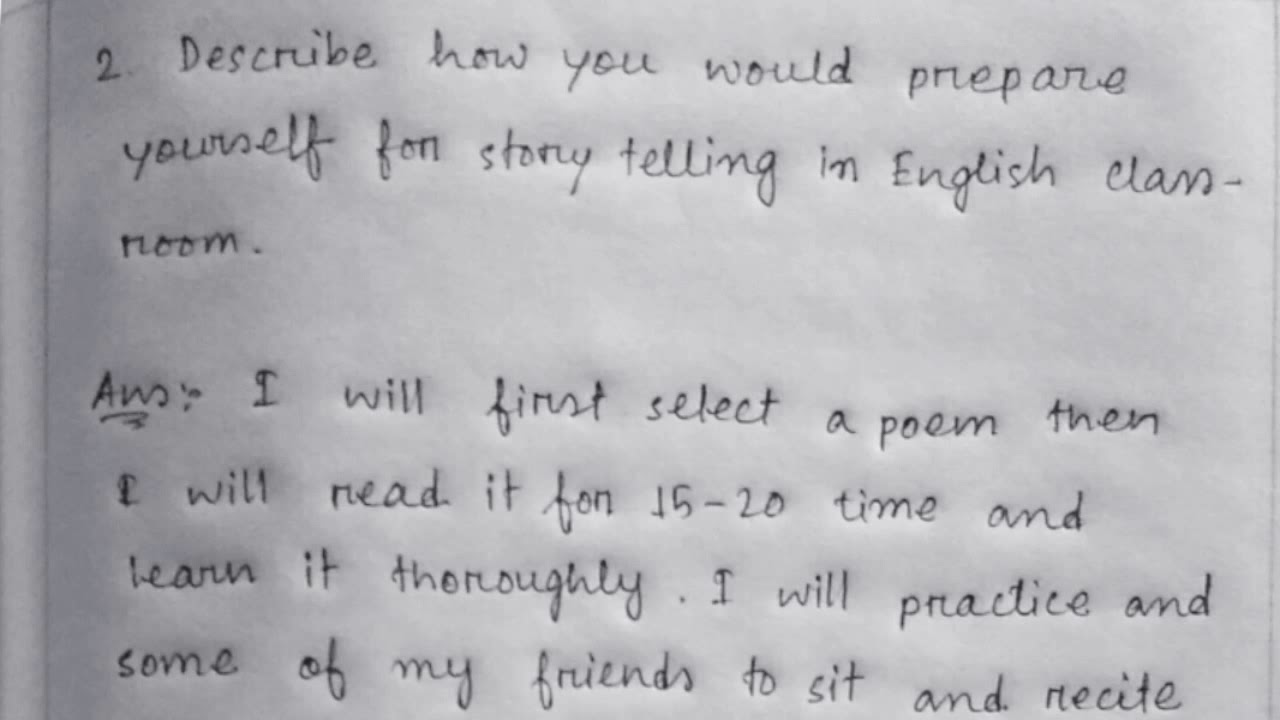 2. Describe how you would prepare
yourself for story telling in English class-
room.
Ans:- I will first select a poem then
I will read it for 15-20 time and
learn it thoroughly. I will practice and
some of my friends to sit and recite